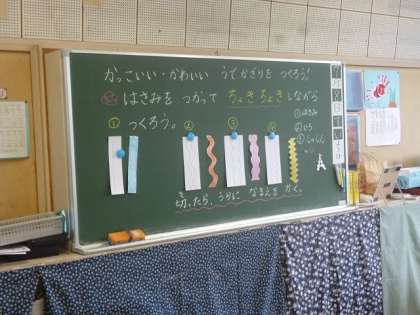 かっこいい・かわいい うでかざりを つくろう!
はさみを つかって ちょきちょき しながら
つくろう。
① ② ③ ④
① はさみ
② のり
切ったら、うらに なまえを かく。